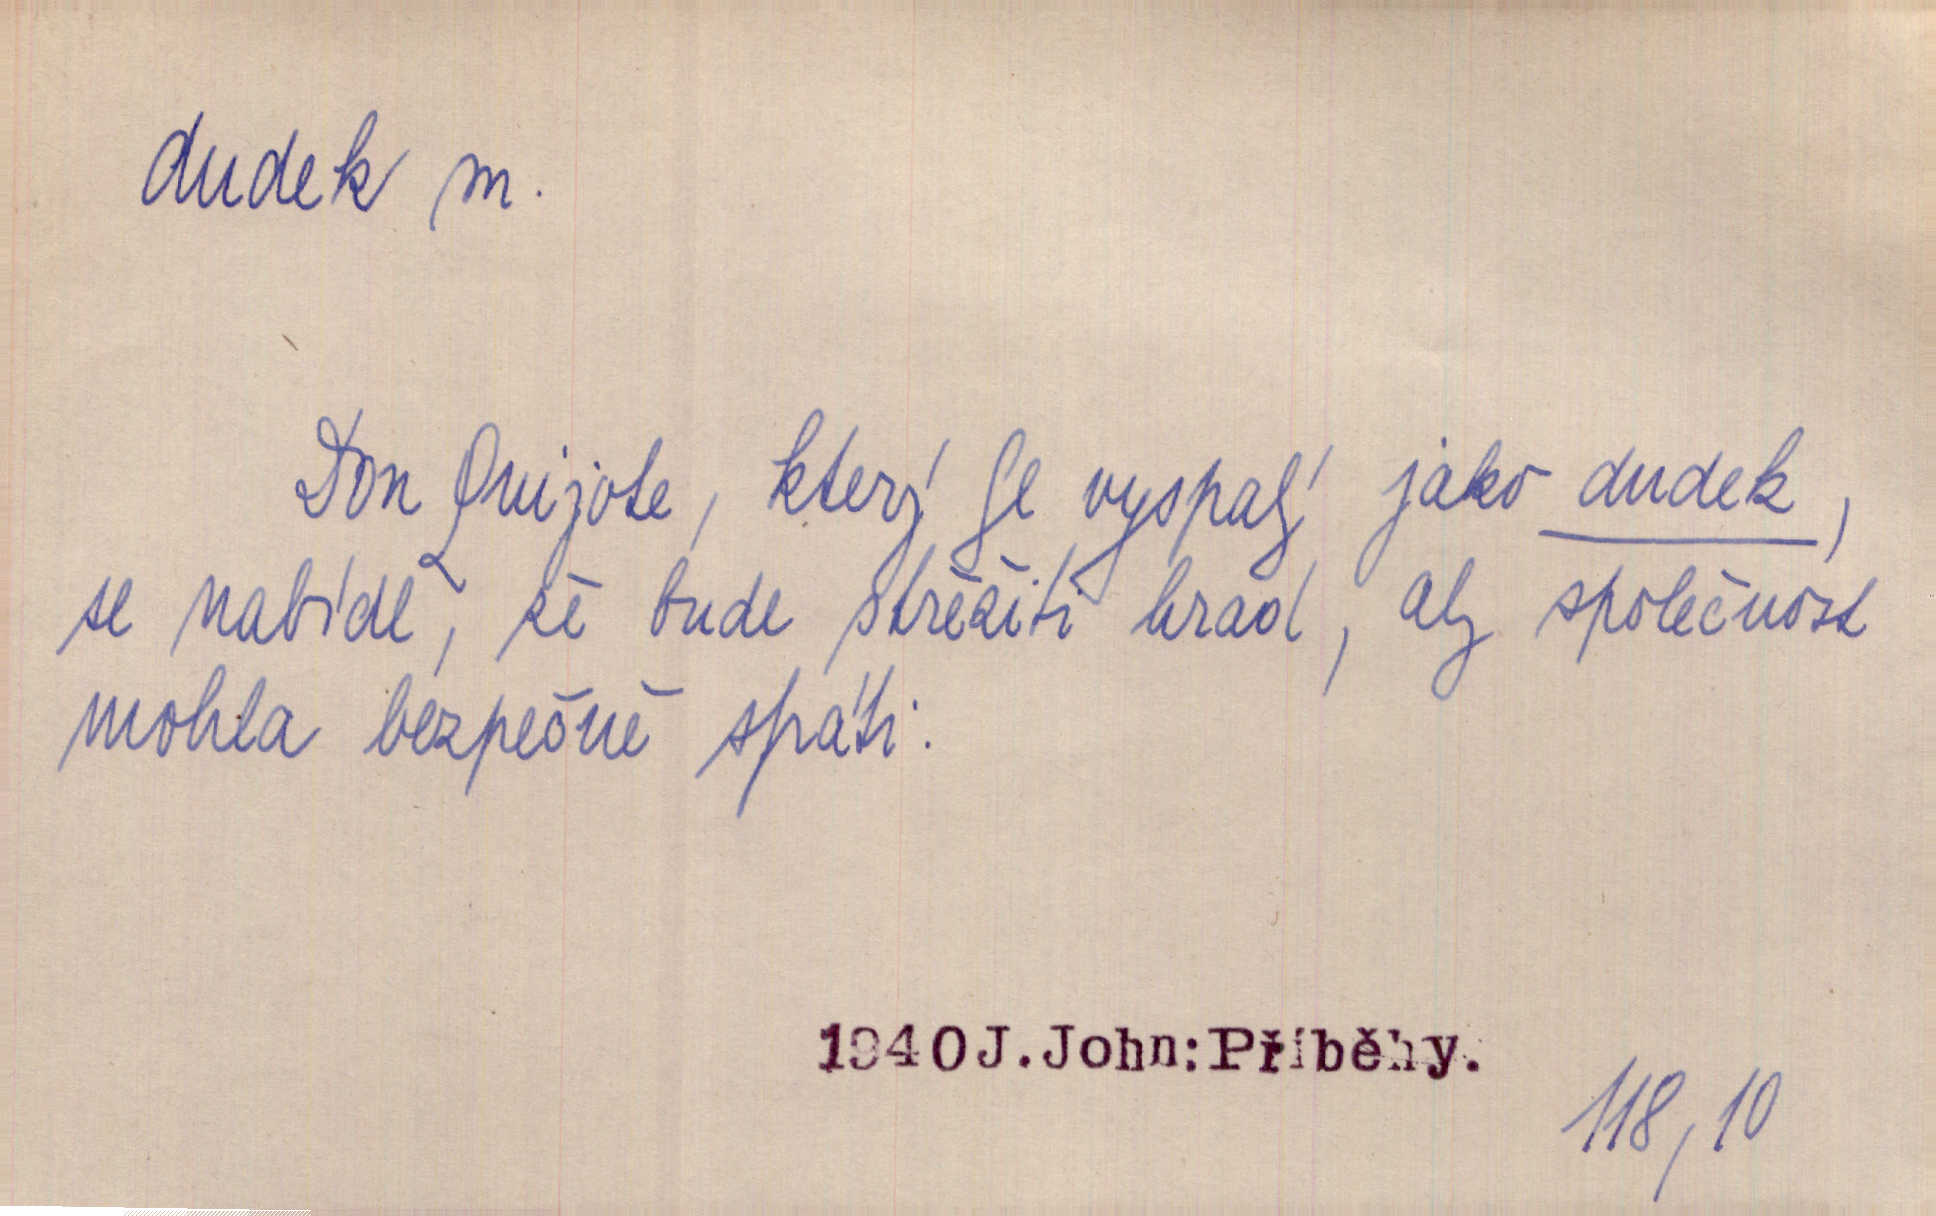 dudek m.
Don Quijote, který je vyspalý jako dudek,
se nabídl, že bude střežiti hrad, aby společnost
mohla bezpečně spáti.
1940 J. John: Příběhy.
118, 10